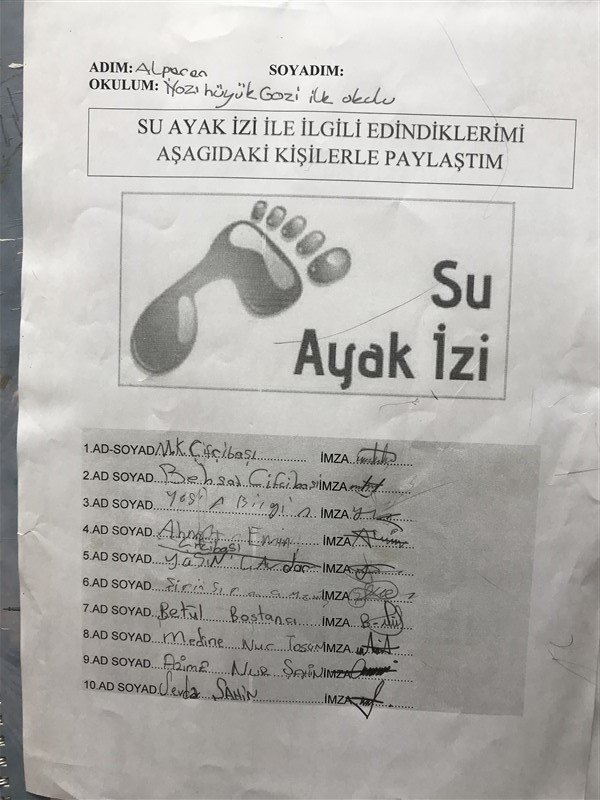 ADIM: Alparen SOYADIM:
OKULUM: Yozı hüyük Gozi ilk okulu
SU AYAK İZİ İLE İLGİLİ EDİNDİKLERİMİ
AŞAGIDAKİ KİŞİLERLE PAYLAŞTIM
Su
Ayak İzi
1.AD-SOYAD M.K Çifçibaşı İMZA
2.AD SOYAD Behsat Cifcibasi İMZA
3.AD SOYAD Bilgin İMZA
4.AD SOYAD Ahmet İMZA
Cifcibaşı
5.AD SOYAD İMZA
6.AD SOYAD İMZA
7.AD SOYAD Betül Bostancı İMZA
8.AD SOYAD Medine Nur Tosun İMZA
9.AD SOYAD Azime Nur ŞAHİN İMZA
10.AD SOYAD Sevda ŞAHİN İMZA